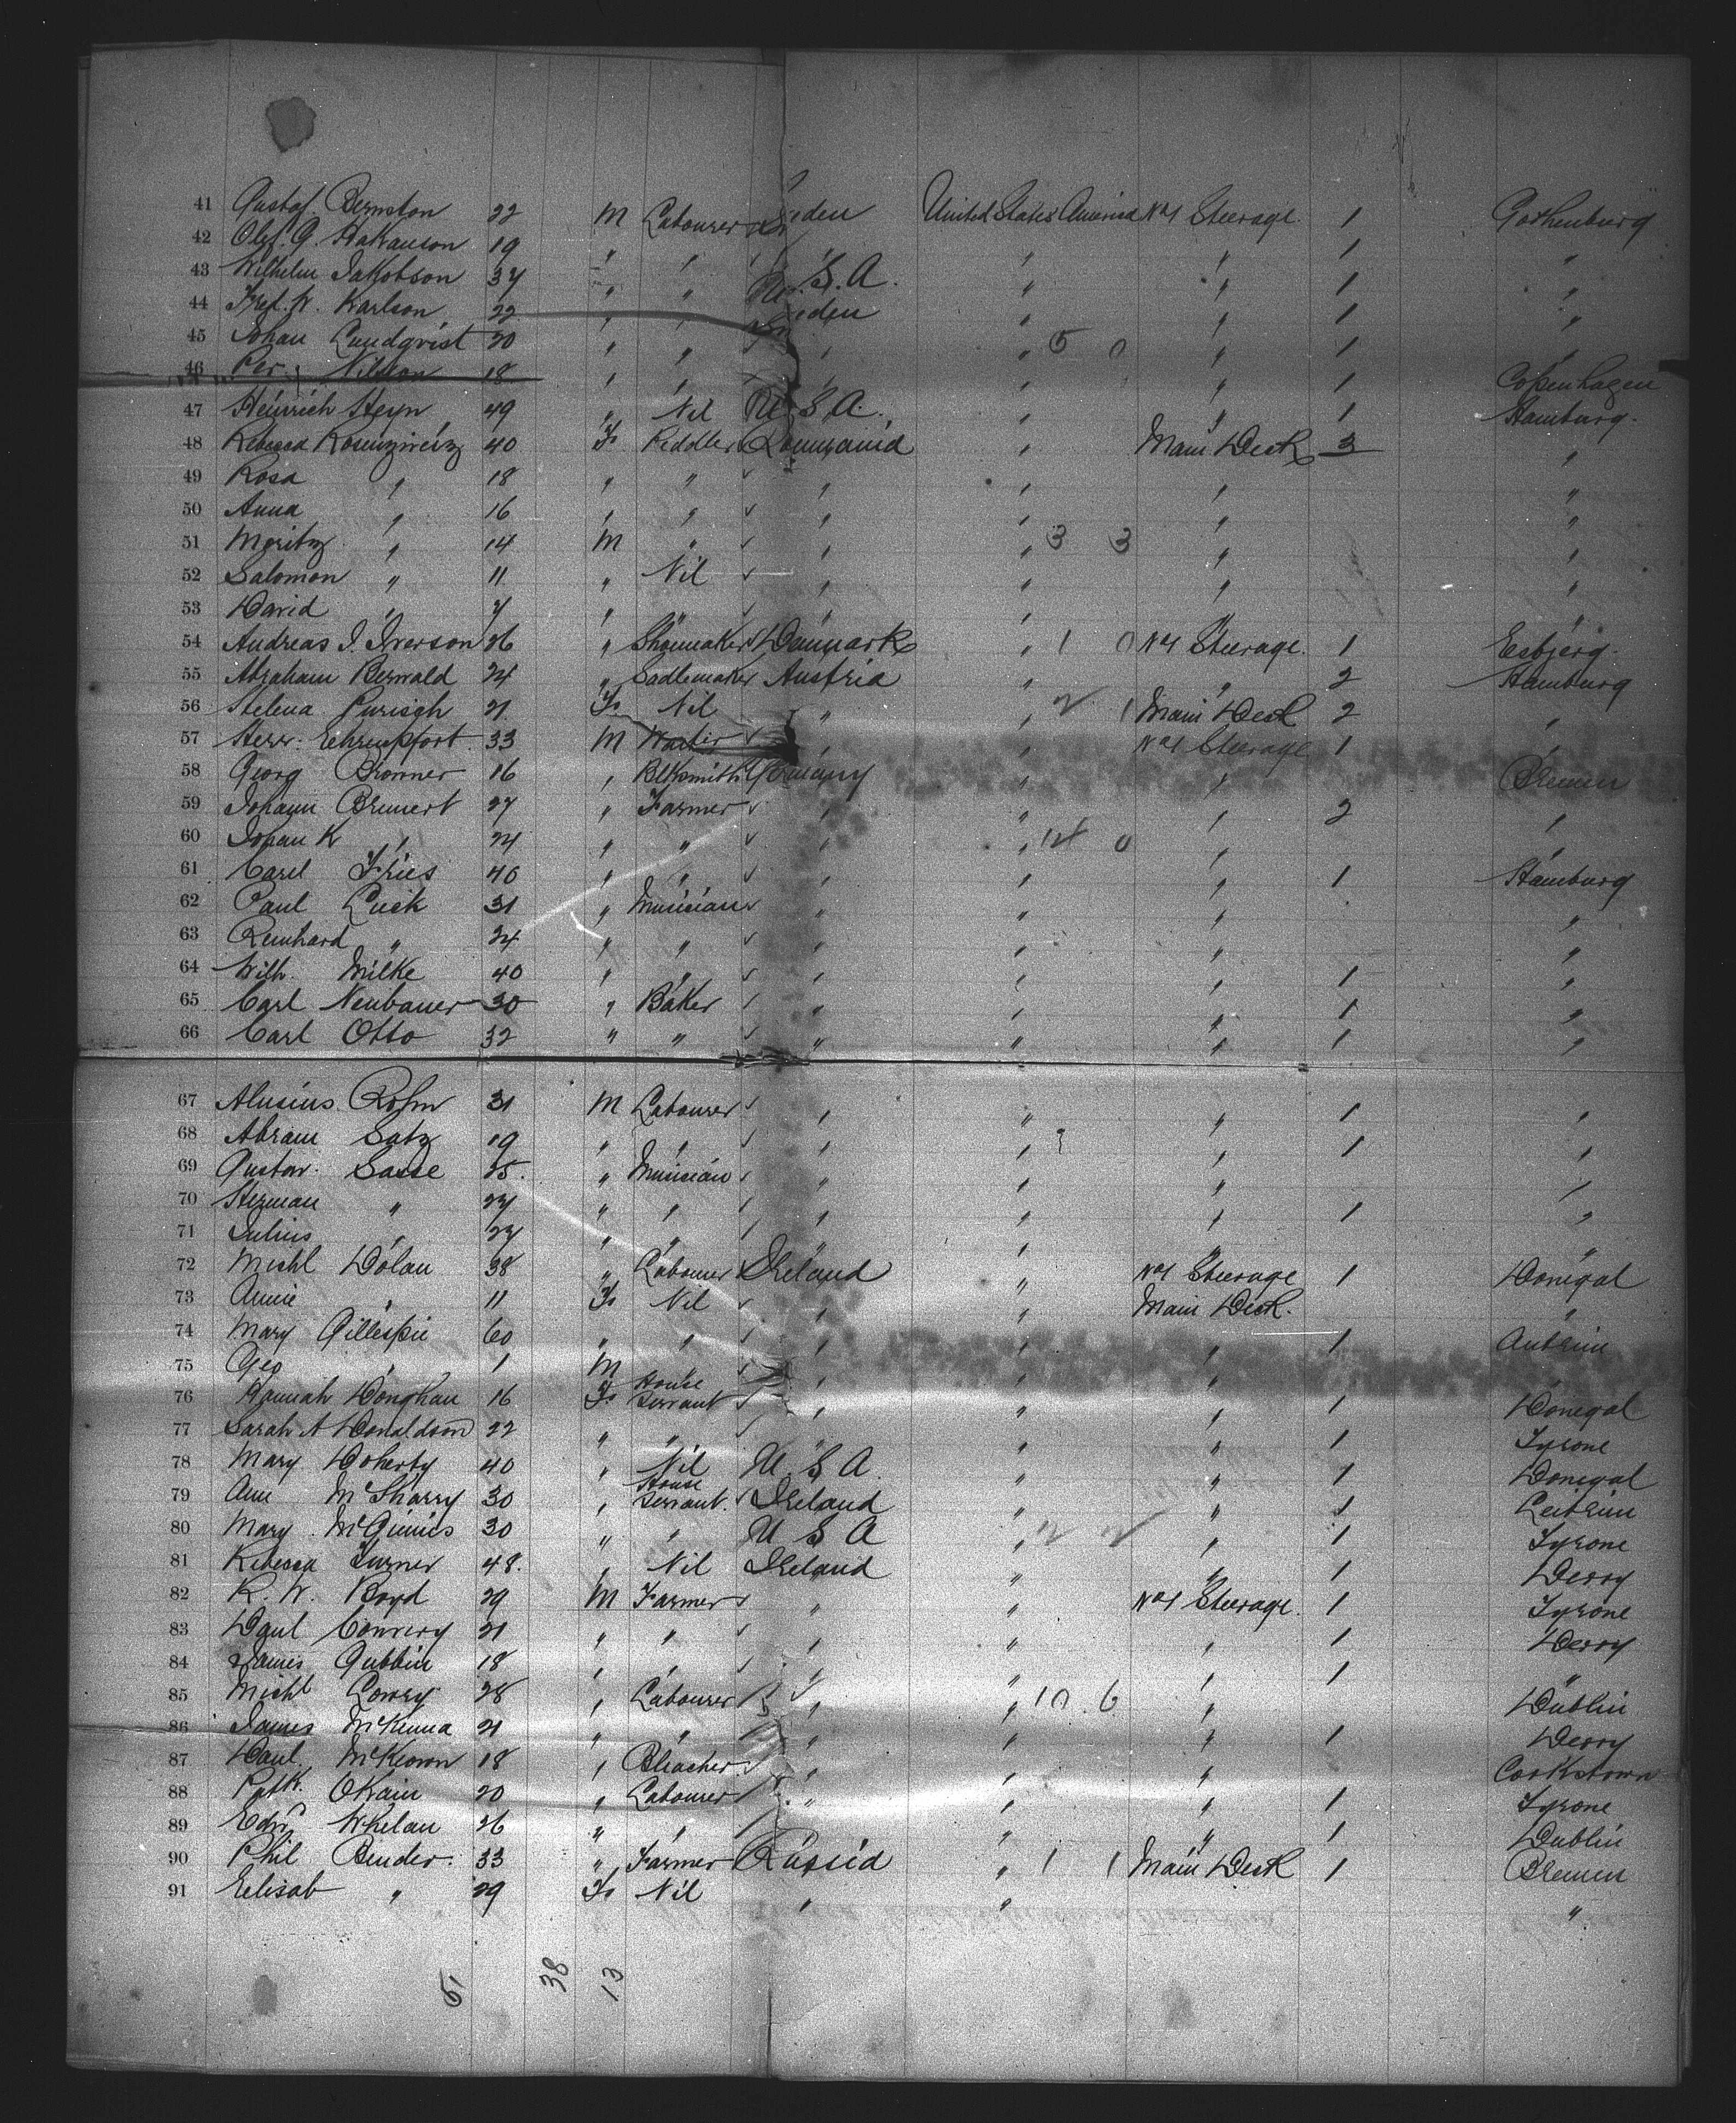 41 Gustaf Bernston 22 M Labourer Sweden United States America No 1 Steerage 1 Gothenburg
42 Olef. G. Hakanson 19 " " " " " 1 "
43 Wilhelm Jakobson 37 " " U. S. A. " " 1 "
44 Fref. W. Karlson 22 " " Sweden " " 1 "
45 Johan Lundqvist 20 " " " " 5 0 " 1 "
46 Per. Nilsson 18 " " " " " 1 Copenhagen
47 Heinrich Heyn 49 " Nil U. S. A. " " 1 Hamburg.
48 Rebecca Rosenzweiz 40 F Peddler Roumania " Main Deck 3 "
49 Rosa " 18 " " " " " "
50 Anna " 16 " " " " " "
51 Moritz " 14 M " " " 3 3 " "
52 Salomon " 11 " Nil " " " "
53 David " 7 " " " " " "
54 Andreas J. Iverson 26 " Shoemaker Denmark " 1 0 No 1 Steerage. 1 Esbjerg.
55 Abraham Berwald 24 " Sadlemaker Austria " " 2 Hamburg
56 Helena 21 F Nil " " 2 1 Main Deck 2 "
57 Herr. Ehrenpfort 33 M Waiter " " No 1 Steerage 1 "
58 Georg Bronner 16 " Blksmith Germany " " Bremen
59 Johann Bremert 27 " Farmer " " " 2 "
60 Johan K " 24 " " " " 14 0 " "
61 Carl Fries 40 " " " " " 1 Hamburg
62 Paul Luck 31 " Musician " " " "
63 Reinhard " 24 " " " " " "
64 Wilh. Milke 40 " " " " " 1 "
65 Carl Neubauer 30 " Baker " " " 1 "
66 Carl Otto 32 " " " " " 1 "
67 Alusius 31 M Labourer " " " 1 "
68 Abram Satz 19 " " " " " 1 "
69 Gustav. Sasse 25. " Musician " " " "
70 Herman " 27 " " " " " 1 "
71 Julius " 27 " " " " " "
72 Michl Dolan 38 " Labourer Ireland " No 1 Steerage 1 Donegal
73 Annie " 11 F Nil " " Main Deck. "
74 Mary Gillespie 60 " " " " " 1 Antrim
75 Geo " 1 M " " "
76 Hannah Donghan 16 F House Servant " " " 1 Donegal
77 Sarah A Donaldson 22 " " " " " 1 Tyrone
78 Mary Doherty 40 " Nil U S A. " " 1 Donegal
79 Ann McSharry 30 " House Servant. Ireland " " 1 Leitrim
80 Mary McGinnis 30 " " U S A " 12 2 " 1 Tyrone
81 Rebecca Turner 48. " Nil Ireland " " 1 Derry
82 R. W. Boyd 29 M Farmer " " No 1 Steerage. 1 Tyrone
83 Danl Convery 21 " " " " " 1 Derry
84 James Gubbin 18 " " " " " 1 "
85 Michl Lowry 28 " Labourer " " 10 6 " Dublin
86 James McKenna 21 " " " " " 1 Derry
87 Danl McKeown 18 " Bleacher " " " Cookstown
88 Patk. OKain 20 " Labourer " " " 1 Tyrone
89 Edwd Whelan 26 " " " " " 1 Dublin
90 Phil Binder. 33 " Farmer Russia " 1 1 Main Deck 1 Bremen
91 Eelisab " 29 F Nil " " "
51 38 13